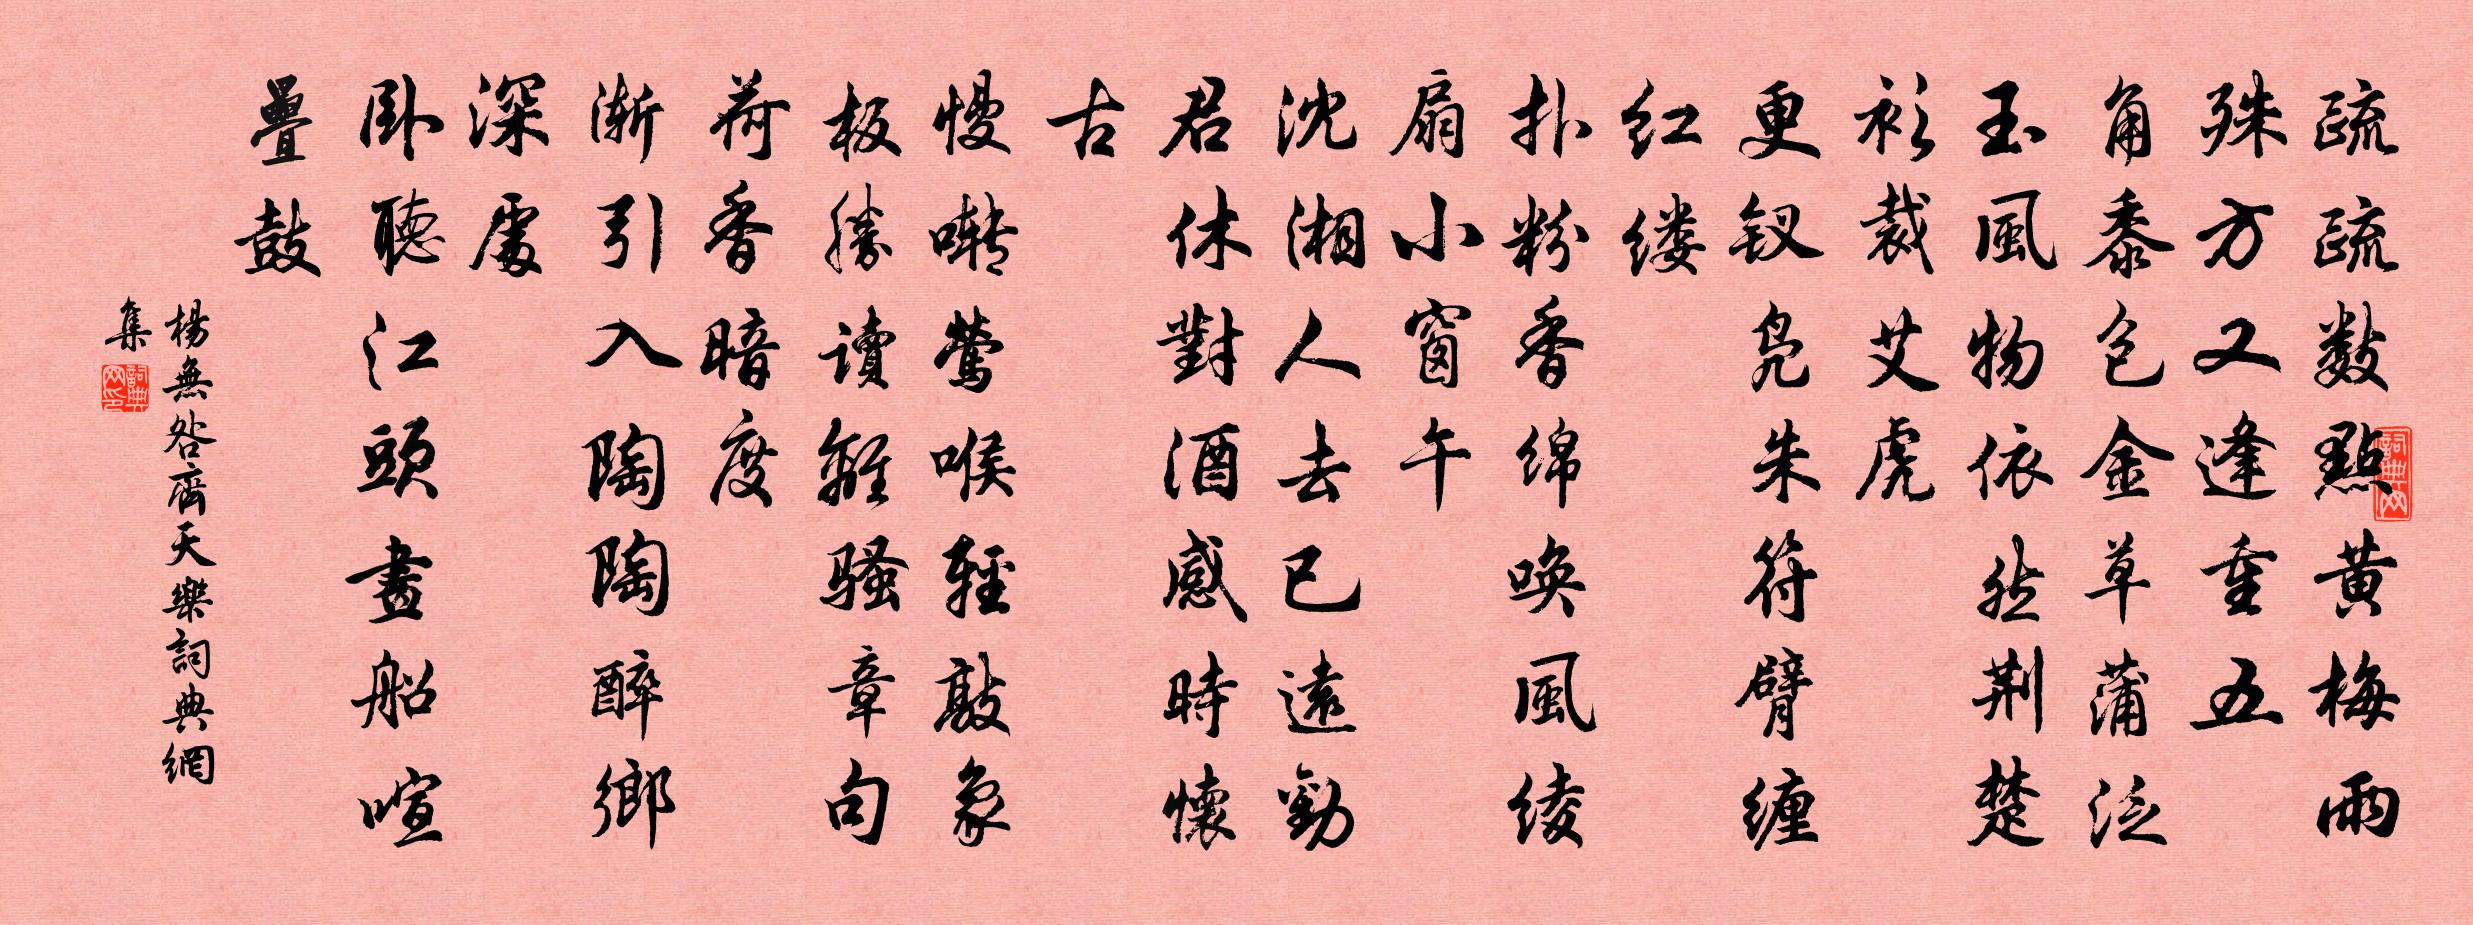 疏疏數點黃梅雨
殊方又逢重五
角黍包金草蒲泛
玉風物依然荊楚
衫裁艾虎
更钗凫朱符臂缠
红缕
扑粉香绵唤風绫
扇小窗午
沈湘人去已遠勸
君休對酒感時懷
古
慢囀鶯喉輕敲象
板勝讀離騷章句
荷香暗度
漸引入陶陶醉鄉
深處
卧聽江頭畫船喧
疊鼓
楊無咎齊天樂詞典網
集
詞典网印
詞典网